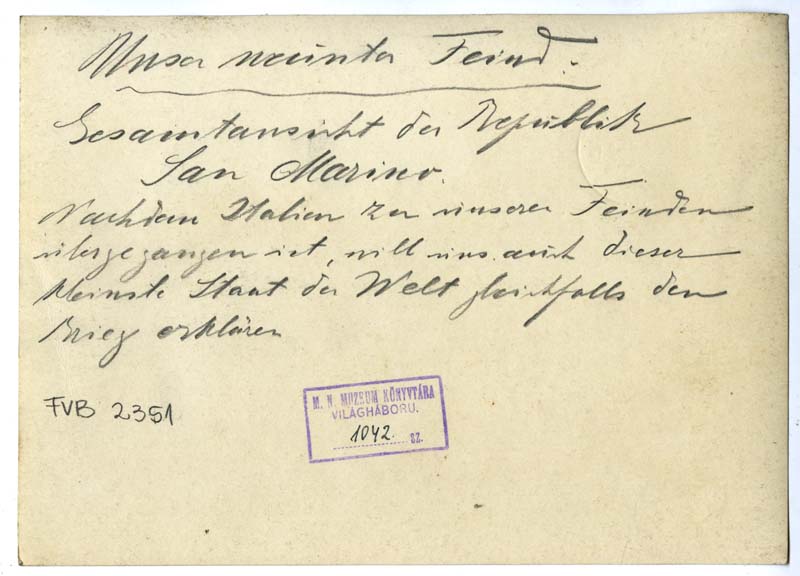 Unser neunter Feind.
Gesamtansicht der Republik
San Marino.
Nachdem Italien zu unseren Feinden
übergegangen ist, will uns auch dieser
kleinste Staat der Welt gleichfalls den
Krieg erklären
FVB 2351
M. N. MUZEUM KÖNYVTÁRA
VILÁGHÁBORU.
1042. SZ.